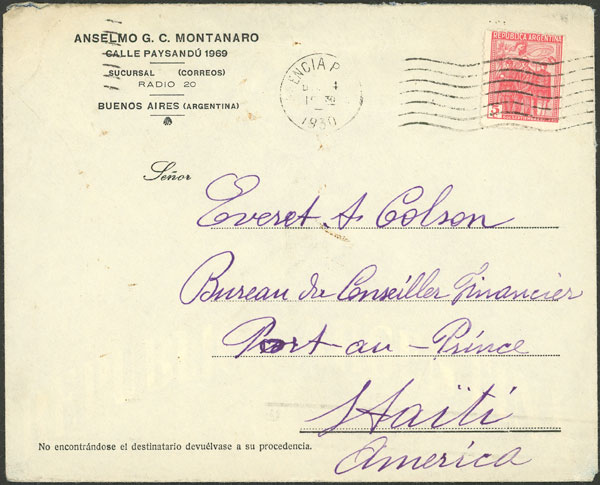 ANSELMO G. C. MONTANARO
CALLE PAYSANDÚ 1969
SUCURSAL (CORREOS)
RADIO 20
BUENOS AIRES (ARGENTINA)
ENCIA P
1930
REPUBLICA ARGENTINA
5
Señor
Everet A. Colson
Bureau du Conseiller Financier
Port-au-Prince
Haïti
America
No encontrándose el destinatario devuélvase a su procedencia.